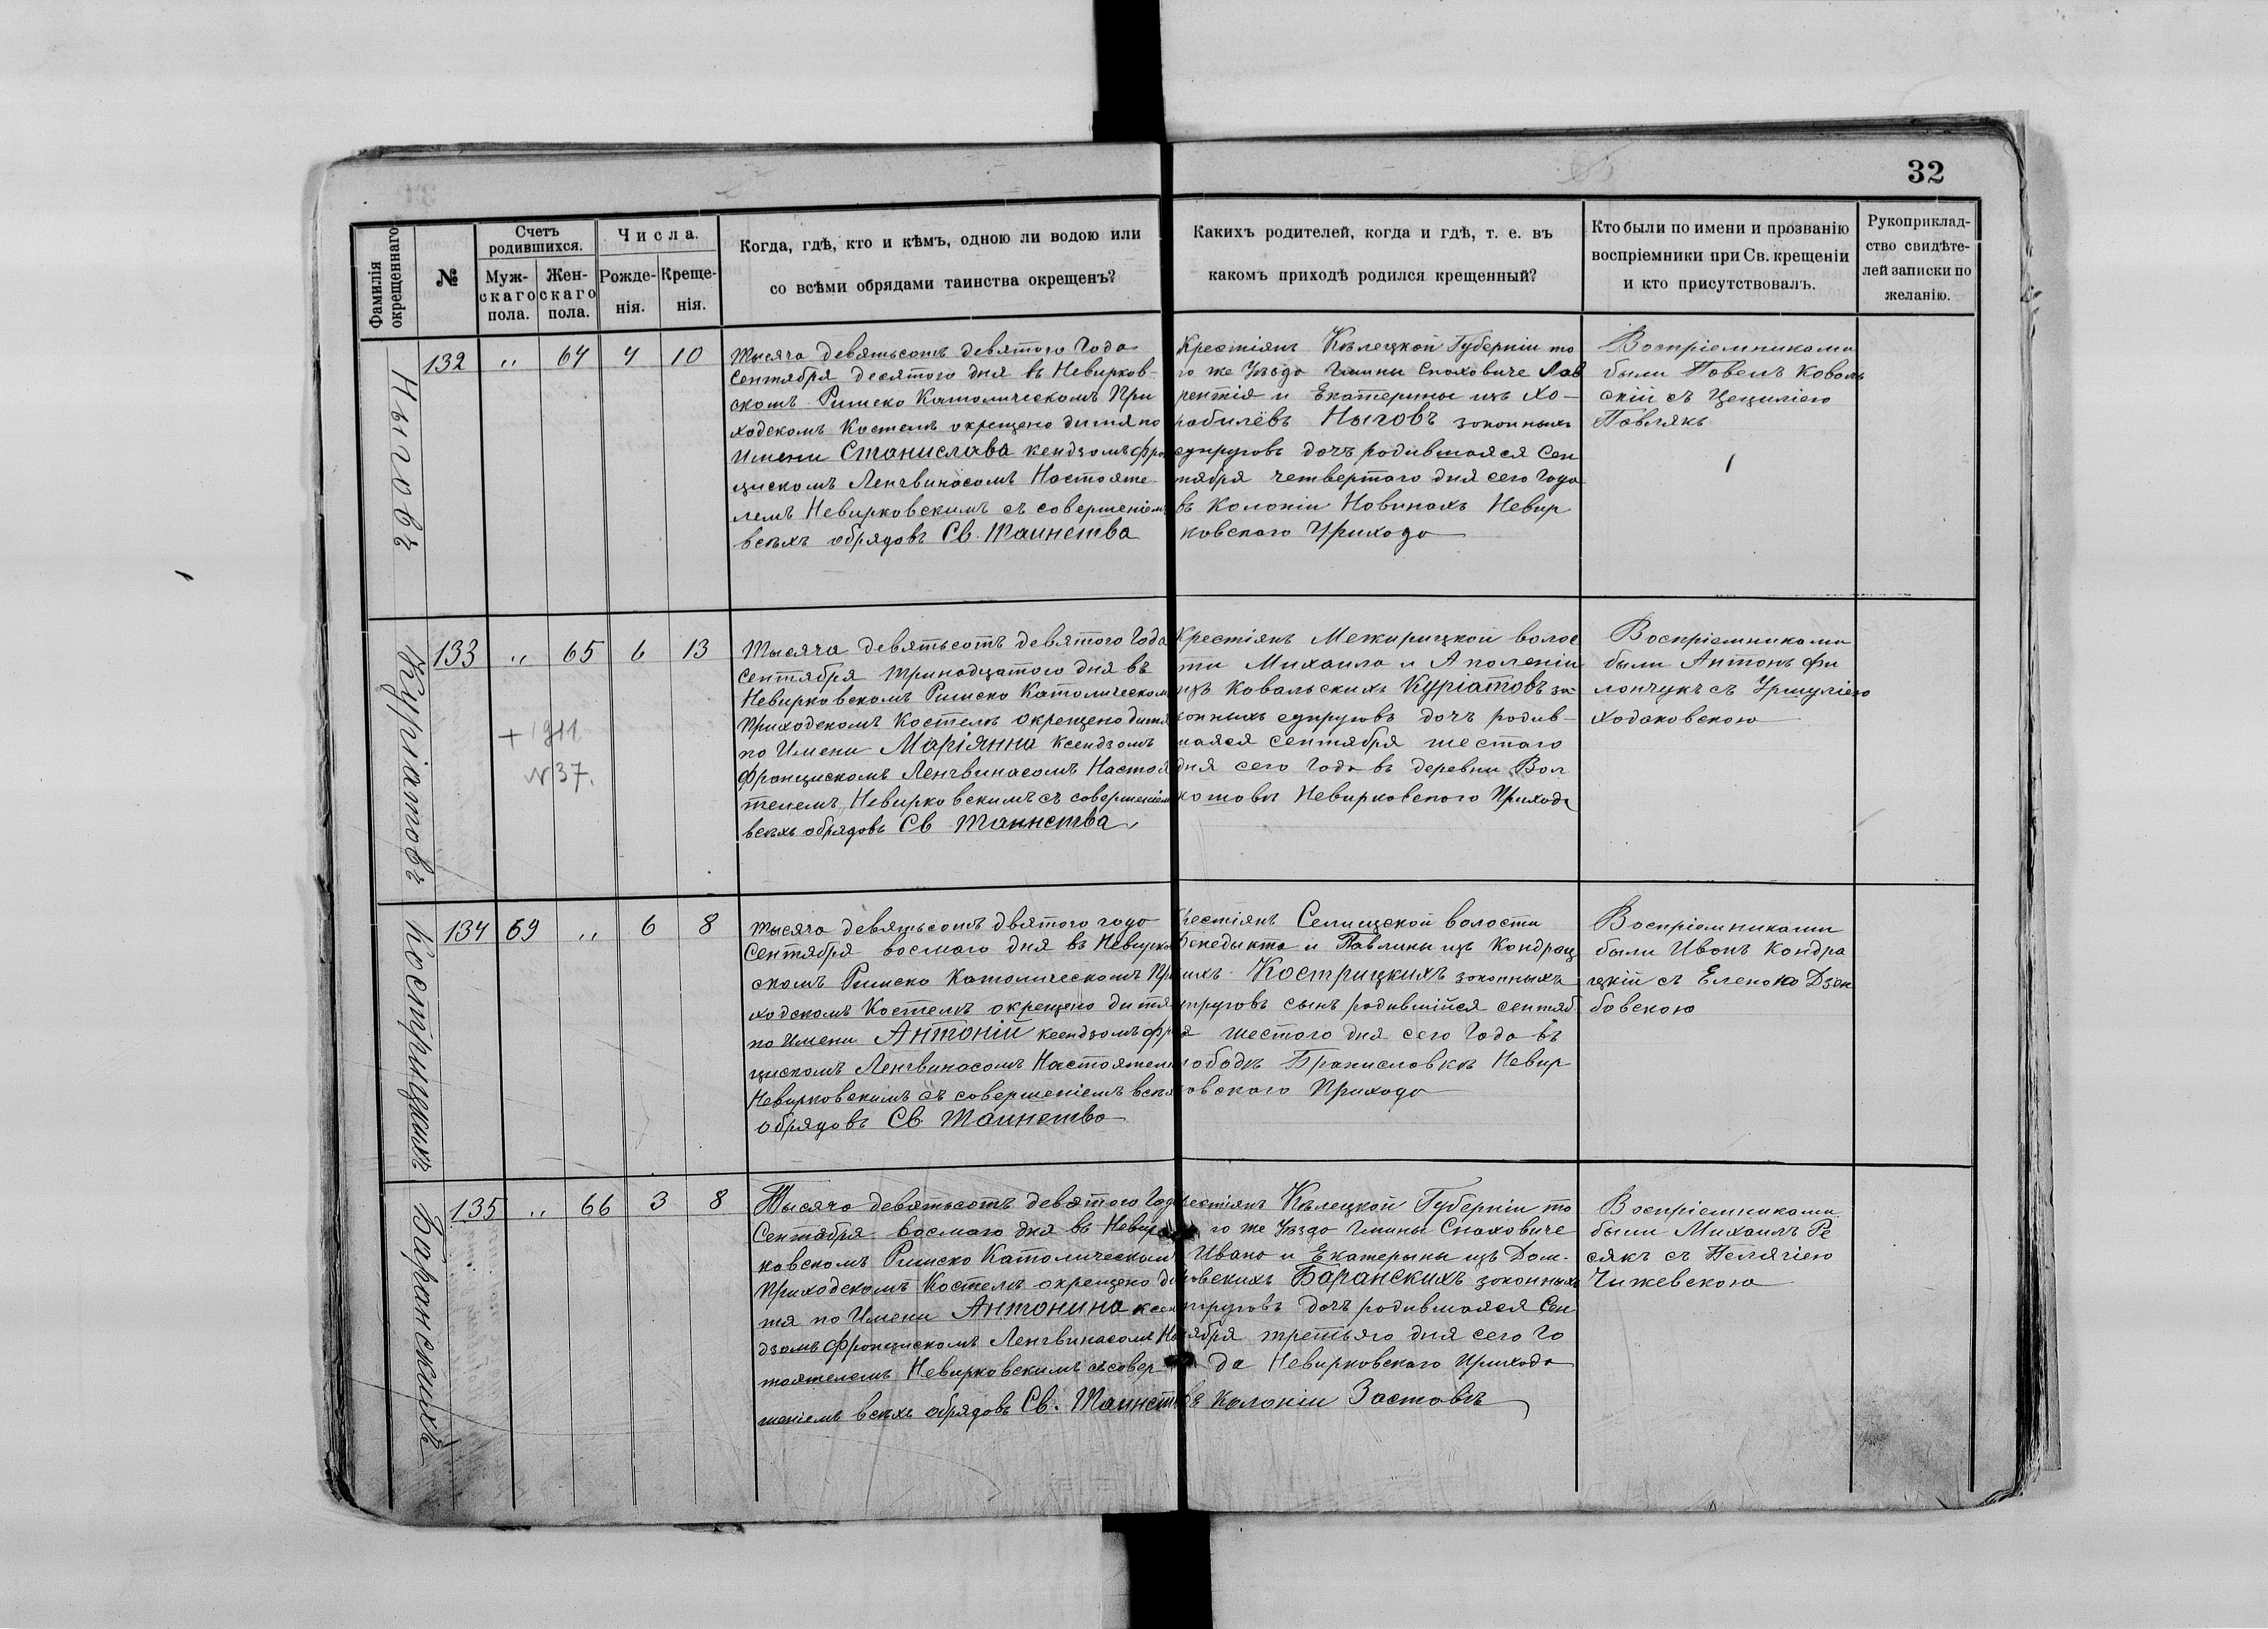 32
Фамилія окрещеннаго
№
Счетъ родившихся.
Мужскаго пола.
Женскаго пола.
Числа.
Рожденія.
Крещенія.
Когда, гдѣ, кто и кѣмъ, одною ли водою или
со всѣми обрядами таинства окрещенъ?
Какихъ родителей, когда и гдѣ, т. е. въ
какомъ приходѣ родился крещенный?
Кто были по имени и прозванію
воспріемники при Св. крещеніи
и кто присутствовалъ.
Рукоприклад-
ство свидѣте-
лей записки по
желанію.
Ныговъ
132 " 64 4 10
Тысяча девятьсотъ девятого Года
Сентября десятого дня въ Невирков-
скомъ Римско Католическомъ При
ходскомъ Костелѣ окрещено дитя по
Имени Станислава кендзомъ Фран
цискомъ Ленгвинасомъ Настояте-
лемъ Невирковскимъ съ совершеніемъ
всѣхъ обрядовъ Св. Таинства
Крестіянъ Кѣлецкой Губерніи то
го же Уѣзда Гмины Снаховиче Лав
рентія и Екатерины изъ Хо-
рабилёвъ Ныговъ законныхъ
супруговъ дочь родившаяся Сен
тября четвертого дня сего Года
въ Колоніи Новинахъ Невир
ковского Прихода
Воспріемниками
были Павелъ Коваль
скій съ Цециліею
Павлякъ
Куріатовъ
133 " 65 6 13
+ 1911
N 37.
Тысяча девятьсотъ девятого Года
Сентября тринадцатого дня въ
Невирковскомъ Римско Католическомъ
Приходскомъ Костелѣ окрещено дитя
по Имени Маріянна Ксендзомъ
Францискомъ Ленгвинасомъ Настоя
телемъ Невирковскимъ съ совершеніемъ
всѣхъ обрядовъ Св Таинства
Крестіянъ Межирицкой волос
ти Михаила и Аполеніи
изъ Ковальскихъ Куріатовъ за-
конныхъ супруговъ дочь родив-
шаяся Сентября шестаго
дня сего Года въ деревни Вол
котовѣ Невирковского Прихода
Воспріемниками
были Антонъ Фи
лончукъ съ Уршуліею
Ходаковскою
Кострицкихъ
134 69 " 6 8
Тысяча девятьсотъ двятого года
Сентября восмаго дня въ Невирков
скомъ Римско Католическомъ При
ходскомъ Костелѣ окрещено дитя
по Имени Антоній ксендзомъ Фран
цискомъ Ленгвинасомъ Настоятелем
Невирковскимъ съ совершеніемъ всѣхъ
обрядовъ Св Таинства
Крестіянъ Селищской волости
Бенедикта и Павлины изъ Кондрац
кихъ Кострицкихъ законныхъ
супруговъ сынъ родившійся сентяб
ря шестого дня сего Года въ
слободѣ Браниславкѣ Невир
ковского Прихода
Воспріемниками
были Иванъ Кондра
цкій съ Еленою Дзен
бовскою
Баранскихъ
135 " 66 3 8
Тысяча девятьсотъ девятого Года
Сентября восмаго дня въ Невир
ковскомъ Римско Католическомъ
Приходскомъ Костелѣ окрещено ди
тя по Имени Антонина ксен
дзомъ Францискомъ Ленгвинасомъ Нас
тоятелемъ Невирковскимъ съ совер
шеніемъ всѣхъ обрядовъ Св. Таинства
Крестіянъ Кѣлецкой Губерніи то
го же Уѣзда Гмины Снаховиче
Ивана и Екатерыны изъ Дом-
ровскихъ Баранскихъ законныхъ
супруговъ дочь родившаяся Сен
тября третьяго дня сего Го
да Невирковскаго Прихода
въ Колоніи Заставѣ
Воспріемниками
были Михаилъ Ре
сякъ съ Пелягіею
Чижевскою